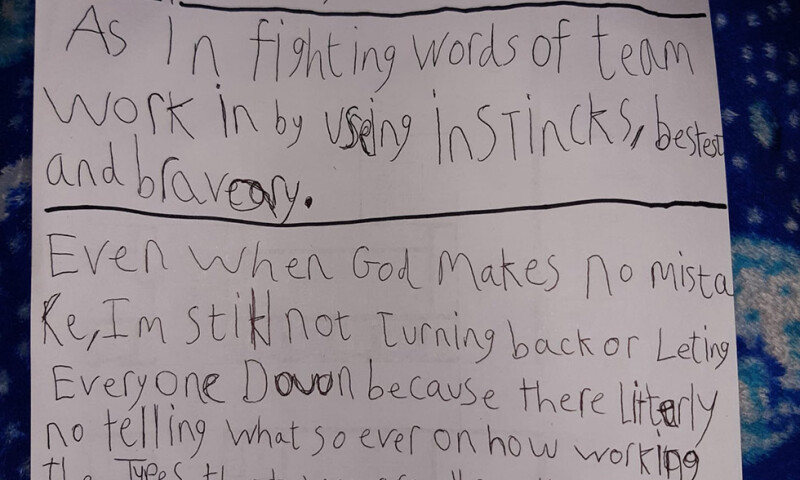 As In fighting words of team
work in by useing instincks, bestest
and braveary.
Even when God makes no mista
ke, Im still not turning back or Leting
Everyone Down because there litterly
no telling what so ever on how working
the Types